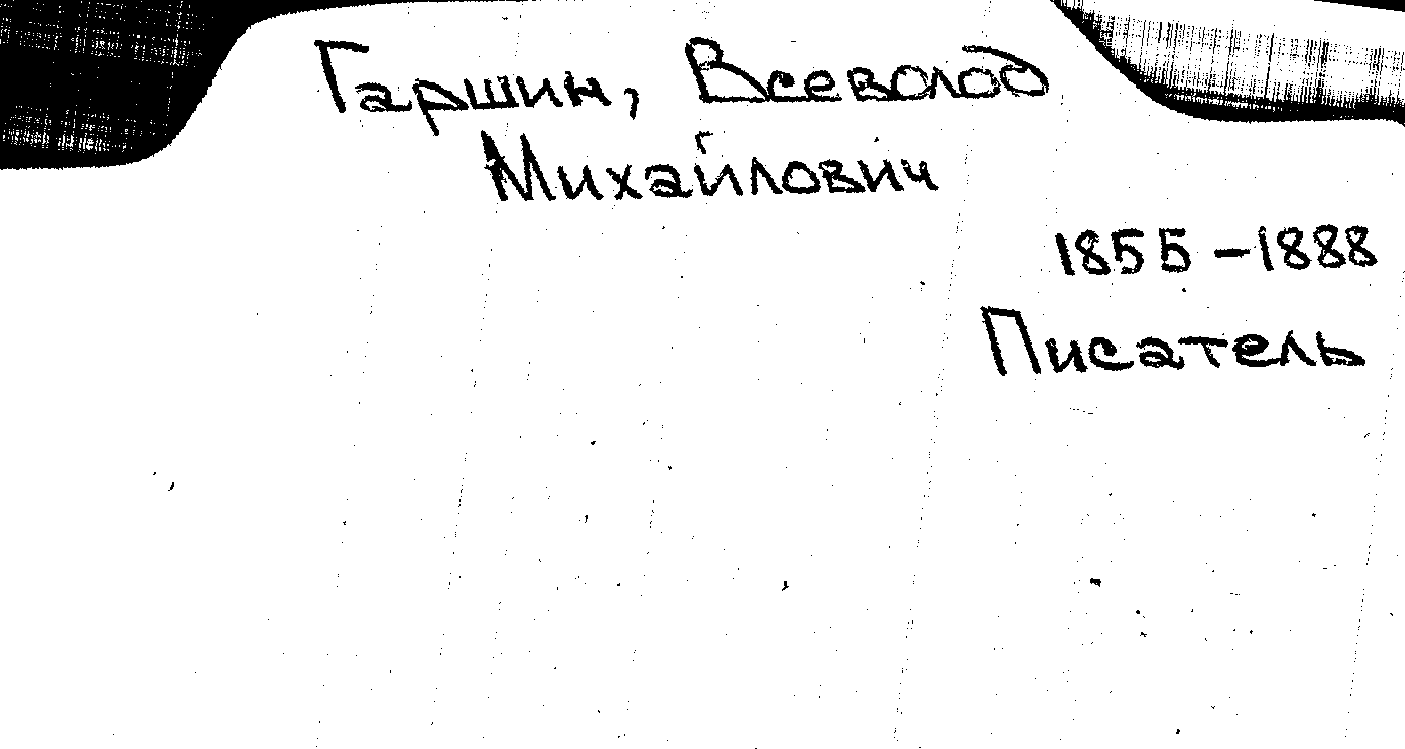 Гаршин, Всеволод
Михайлович
1855-1888
Писатель